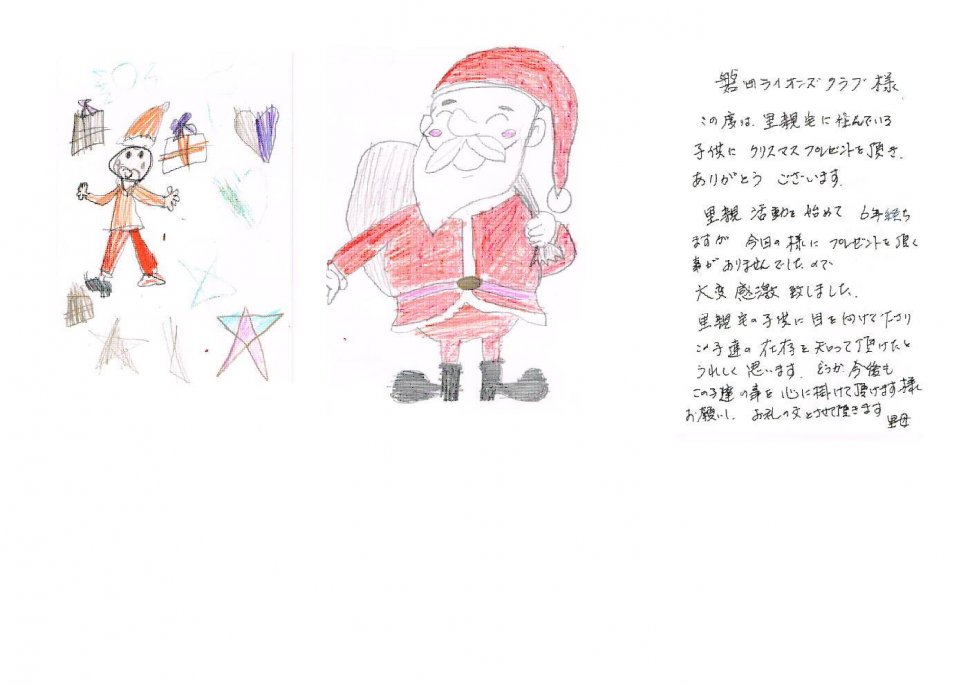 磐田ライオンズクラブ様
この度は、里親宅に住んでいる
子供に クリスマスプレゼントを頂き、
ありがとう ございます。
里親 活動を 始めて 6年経ち
ますが 今日の様に プレゼントを頂く
事がありませんでしたので
大変 感激 致しました。
里親宅の子供に 目を向けて下さり
この子達の 存在を 知って頂けたと
うれしく 思います。 どうか 今後も
この子達の事を 心に掛けて頂けます様
お願いし、 お礼の文とさせて頂きます
里母